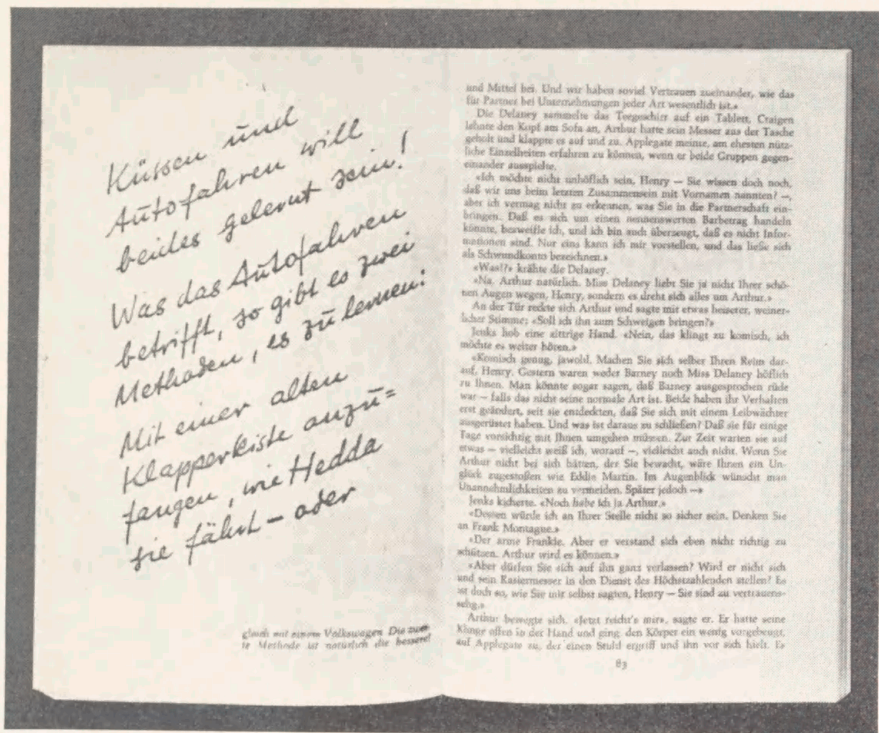 Küssen und
Autofahren will
beides gelernt sein!
Was das Autofahren
betrifft, so gibt es zwei
Methoden, es zu lernen:
Mit einer alten
Klapperkiste anzu=
fangen, wie Hedda
sie fährt – oder
gleich mit einem Volkswagen. Die zwei-
te Methode ist natürlich die bessere!
und Mittel bei. Und wir haben soviel Vertrauen zueinander, wie das
für Partner bei Unternehmungen jeder Art wesentlich ist.»
Die Delaney sammelte das Teegeschirr auf ein Tablett, Craigen
lehnte den Kopf am Sofa an, Arthur hatte sein Messer aus der Tasche
geholt und klappte es auf und zu. Applegate meinte, am ehesten nütz-
liche Einzelheiten erfahren zu können, wenn er beide Gruppen gegen-
einander ausspielte.
«Ich möchte nicht unhöflich sein, Henry – Sie wissen doch noch,
daß wir uns beim letzten Zusammensein mit Vornamen nannten? –,
aber ich vermag nicht zu erkennen, was Sie in die Partnerschaft ein-
bringen. Daß es sich um einen nennenswerten Barbetrag handeln
könnte, bezweifle ich, und ich bin auch überzeugt, daß es nicht Infor-
mationen sind. Nur eins kann ich mir vorstellen, und das ließe sich
als Schwundkonto bezeichnen.»
«Was!?» krähte die Delaney.
«Na, Arthur natürlich. Miss Delaney liebt Sie ja nicht Ihrer schö-
nen Augen wegen, Henry, sondern es dreht sich alles um Arthur.»
An der Tür reckte sich Arthur und sagte mit etwas heiserer, weiner-
licher Stimme: «Soll ich ihn zum Schweigen bringen?»
Jenks hob eine zittrige Hand. «Nein, das klingt zu komisch, ich
möchte es weiter hören.»
«Komisch genug, jawohl. Machen Sie sich selber Ihren Reim dar-
auf, Henry. Gestern waren weder Barney noch Miss Delaney höflich
zu Ihnen. Man könnte sogar sagen, daß Barney ausgesprochen rüde
war – falls das nicht seine normale Art ist. Beide haben ihr Verhalten
erst geändert, seit sie entdeckten, daß Sie sich mit einem Leibwächter
ausgerüstet haben. Und was ist daraus zu schließen? Daß sie für einige
Tage vorsichtig mit Ihnen umgehen müssen. Zur Zeit warten sie auf
etwas – vielleicht weiß ich, worauf –, vielleicht auch nicht. Wenn Sie
Arthur nicht bei sich hätten, der Sie bewacht, wäre Ihnen ein Un-
glück zugestoßen wie Eddie Martin. Im Augenblick wünscht man
Unannehmlichkeiten zu vermeiden. Später jedoch –»
Jenks kicherte. «Noch habe ich ja Arthur.»
«Dessen würde ich an Ihrer Stelle nicht so sicher sein. Denken Sie
an Frank Montague.»
«Der arme Frankie. Aber er verstand sich eben nicht richtig zu
schützen. Arthur wird es können.»
«Aber dürfen Sie sich auf ihn ganz verlassen? Wird er nicht sich
und sein Rasiermesser in den Dienst des Höchstzahlenden stellen? Es
ist doch so, wie Sie mir selbst sagten, Henry – Sie sind zu vertrauens-
selig.»
Arthur bewegte sich. «Jetzt reicht's mir», sagte er. Er hatte seine
Klinge offen in der Hand und ging, den Körper ein wenig vorgebeugt,
auf Applegate zu, der einen Stuhl ergriff und ihn vor sich hielt. Er
83